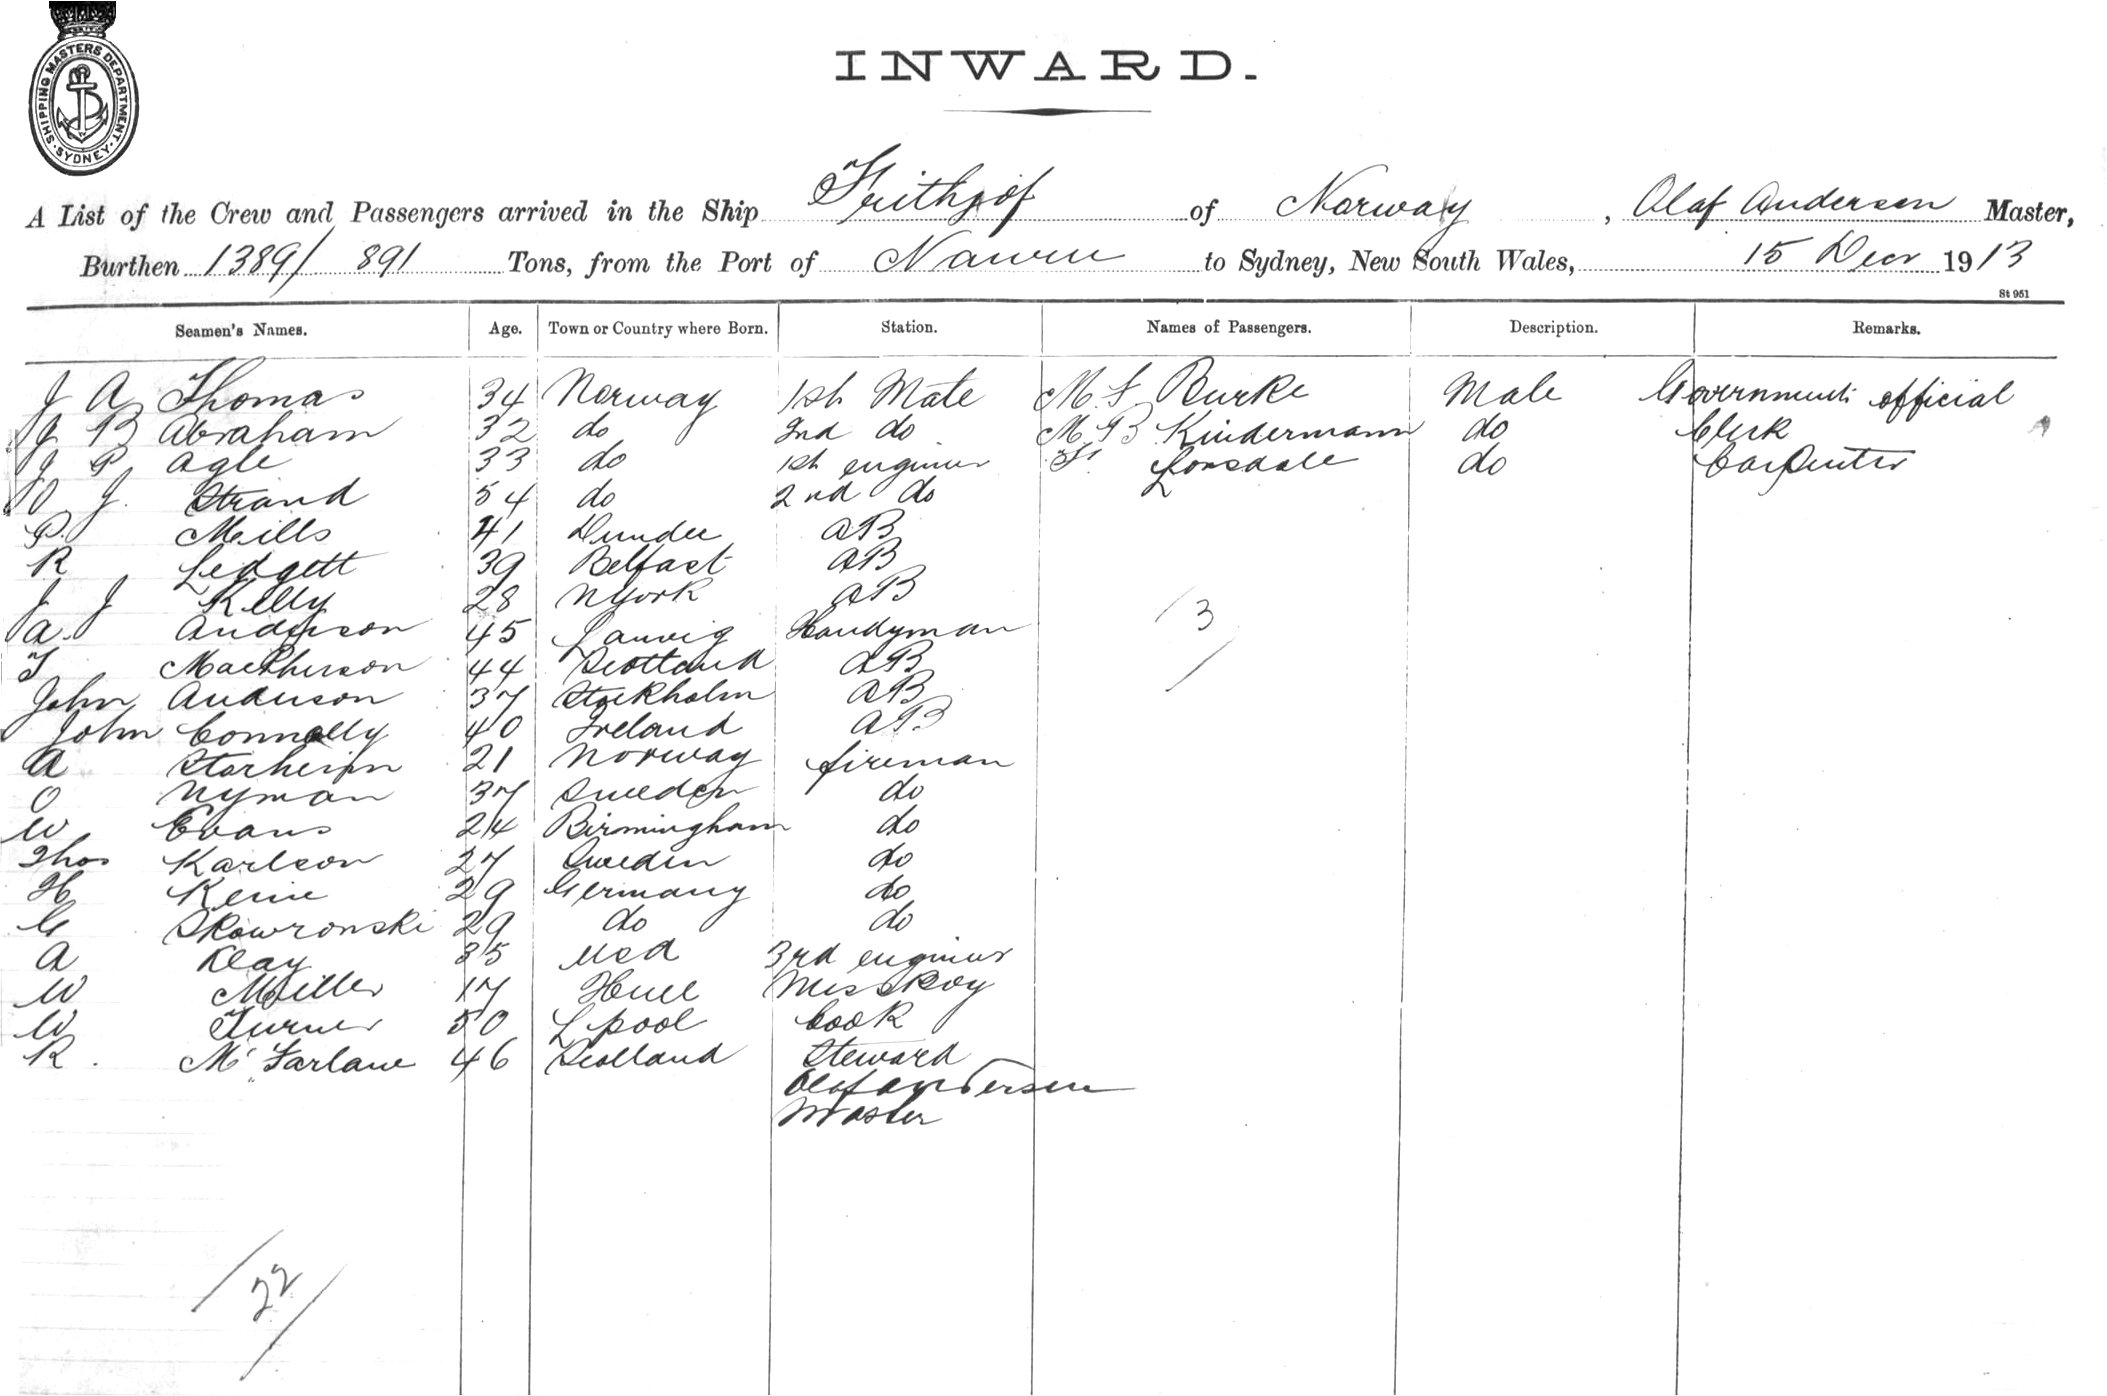 SHIPPING MASTERS DEPARTMENT. SYDNEY.
INWARD.
A List of the Crew and Passengers arrived in the Ship Frithjof of Norway, Olaf Andersen Master,
Burthen 1389/ 891 Tons, from the Port of Nauru to Sydney, New South Wales, 15 Decr 1913
St 951
Seamen's Names. Age. Town or Country where Born. Station. Names of Passengers. Description. Remarks.
J A Thomas 34 Norway 1st Mate M. F. Burke Male Government official
J B Abraham 32 do 2nd do M. B Kindermann do Clerk
J P Agle 33 do 1st engineer F. Lonsdale do Carpenter
O J. Strand 54 do 2nd do
P. Mills 41 Dundee AB
R Ledgett 39 Belfast AB
J J Kelly 28 NYork AB
A. Anderson 45 Laurvig Handyman
T MacPherson 44 Scotland AB
John Anderson 37 Stockholm AB
John Connolly 40 Ireland AB
A Storheim 21 Norway fireman
O Nyman 37 Sweden do
W Evans 24 Birmingham do
Thos Karlson 27 Sweden do
H 29 Germany do
G Skowronski 29 do do
A Clay 35 USA 3rd engineer
W Miller 17 Hull MessBoy
W Turner 50 Lpool Cook
R. McFarlane 46 Scotland Steward
Olaf Andersen
Master
3
22